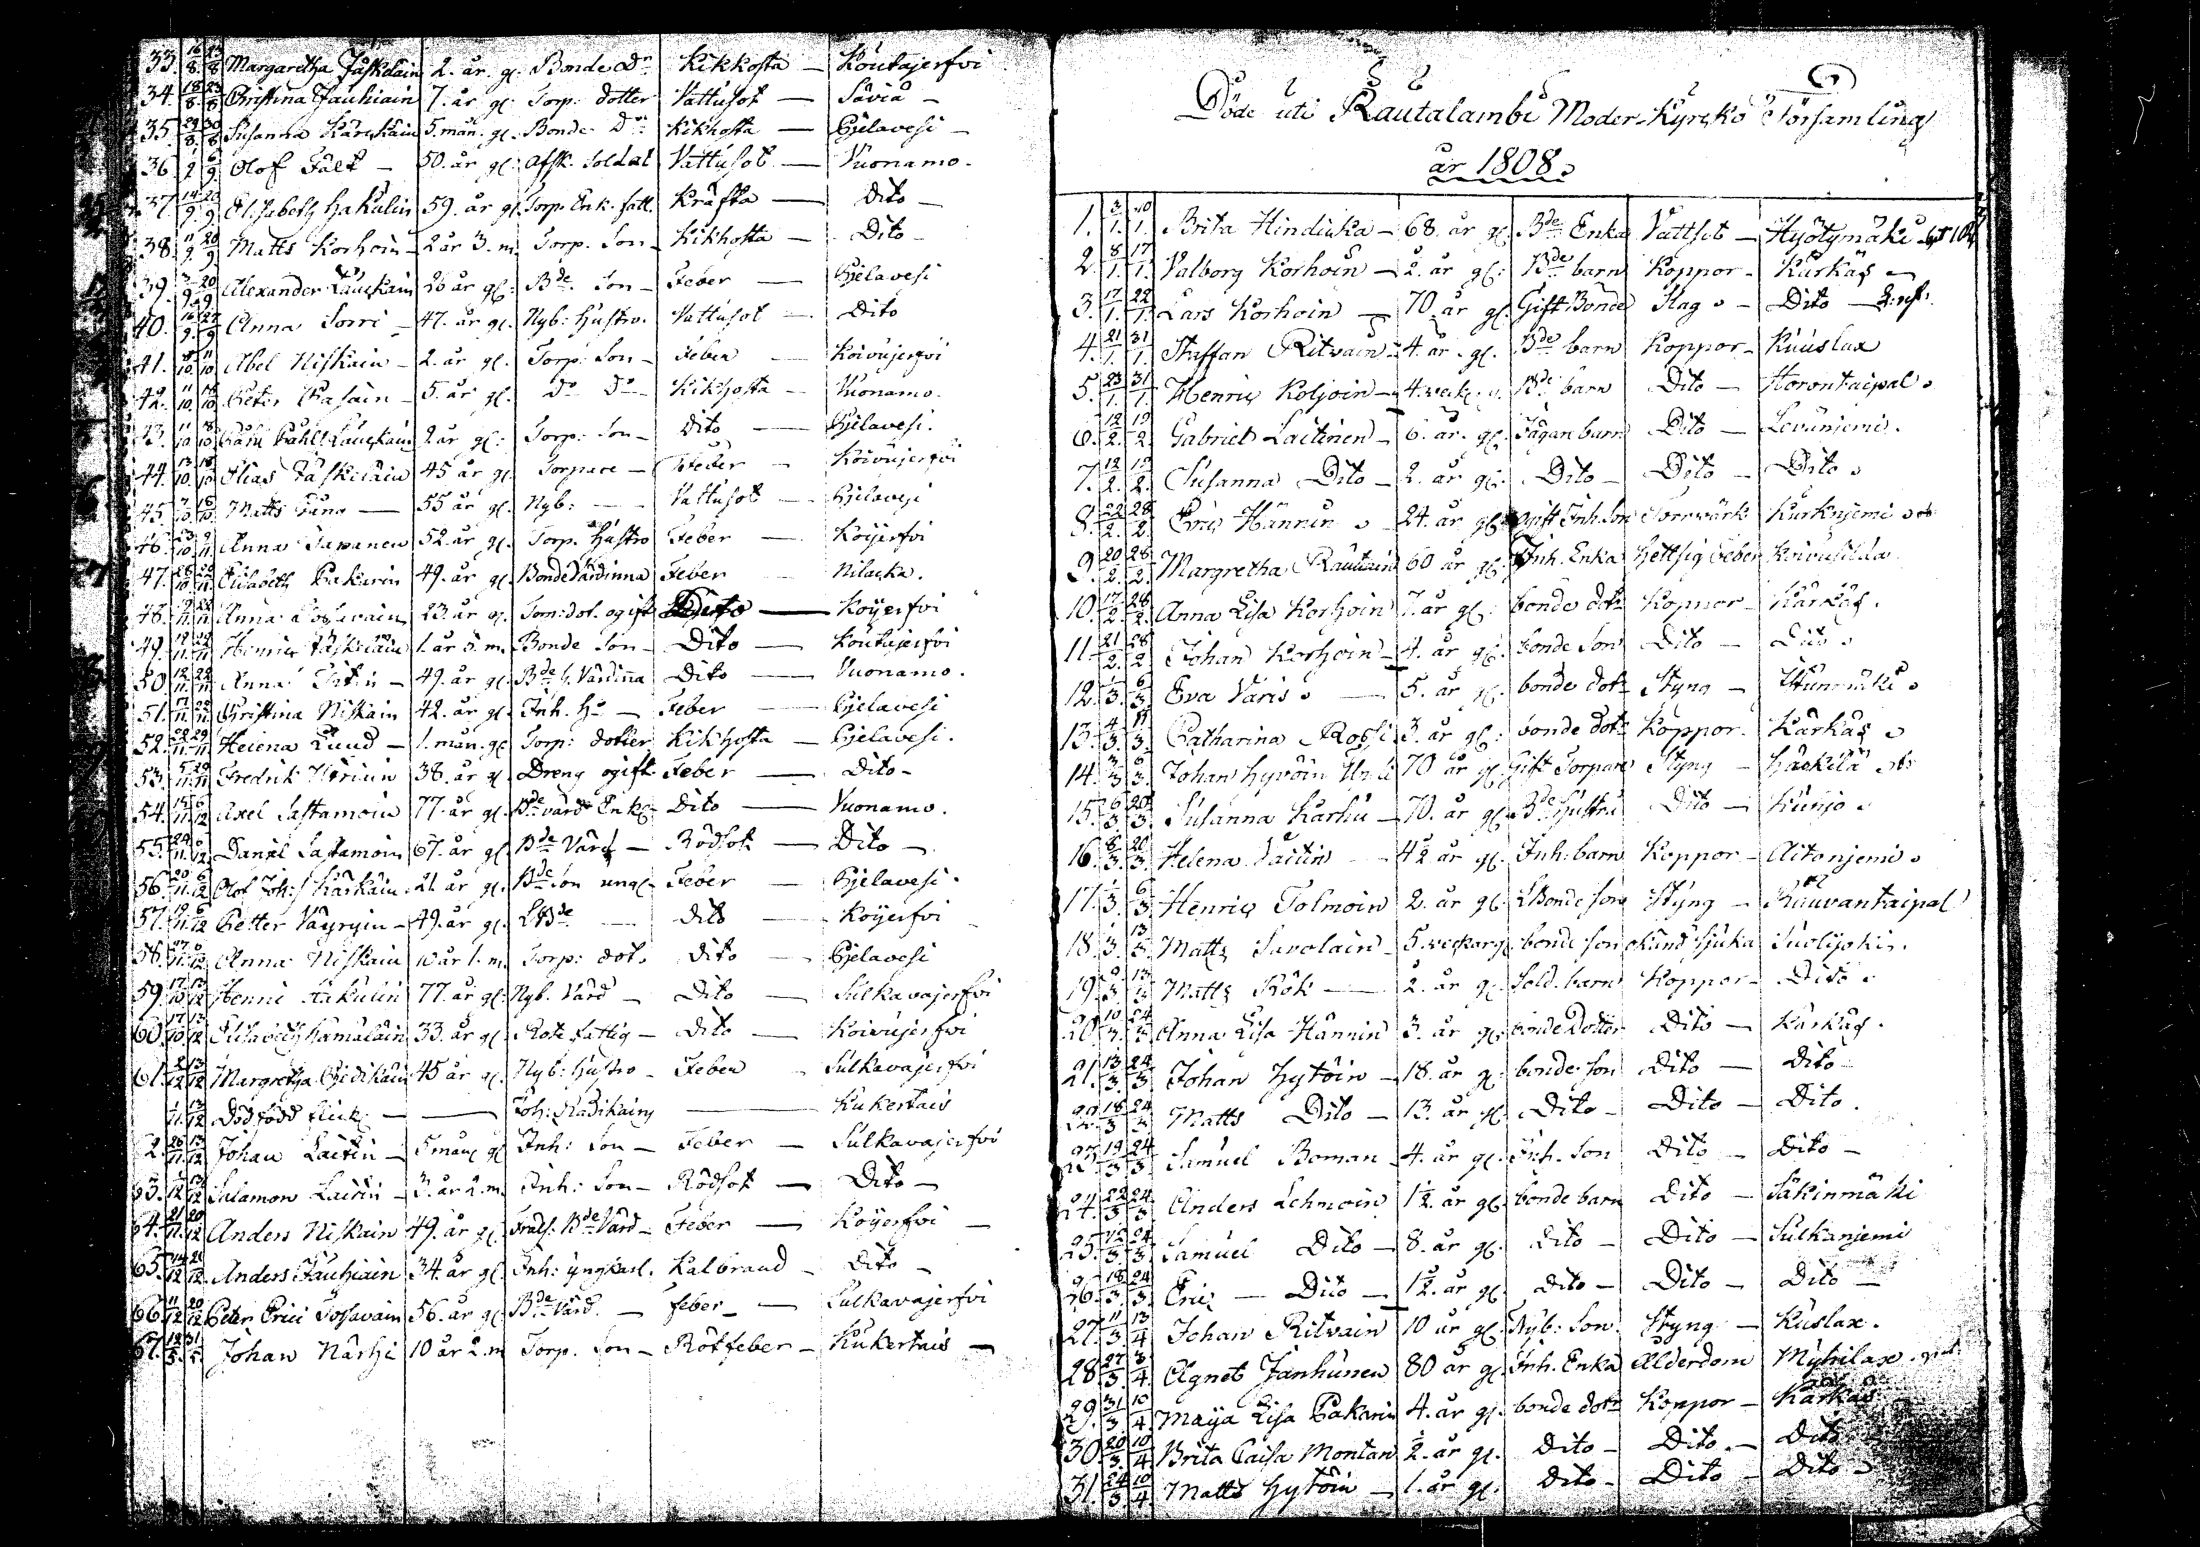 33. 16/8 23/8 Margaretha Jäskeläin 2. år gl. Bonde Dr Kikhosta — Koutajerfvi
34. 18/8 23/8 Christina Jauhiain 7. år gl. Torp. dotter Vattusot — Savia —
35. 29/8 30/8 Susanna Kärckäin 5. mån. gl. Bonde Dr Kikhosta — Pjelavesi —
36 1/9 6/9 Olof Fält — 50. år gl. Afsk. Soldat Vattusot — Vuonamo.
37. 14/9 20/9 Elisabeth Hakulin 59. år gl. Torp. Enk. fatt. Kräfta — Dito —
38. 11/9 20/9 Matts Korhoin — 2 år 3. m. Torp. Son — Kikhosta — Dito —
39. 3/9 20/9 Alexander Lauckain 26 år gl: Bde Son — Feber — Pjelavesi
40. 16/9 27/9 Anna Sorri — 47. år gl. Nyb: Hustro. Vattusot — Dito
41. 10 11/10 Abel Niskain — 2. år gl. Torp: Son — Feber — Koivujerfvi
42. 11/10 18/10 Peter Pasain — 5. år gl. Do Do — Kikhosta — Vuonamo.
43. 11/10 18/10 Påhl Påhls: Lauckain 2 år gl: Torp: Son — Dito — Pjelavesi.
44. 13/10 18/10 Elias Jäskeläin 45 år gl. Torpare — Feber — Koivujerfvi
45. 7/10 18/10 Matts — 55 år gl. Nyb: — Vattusot — Pjelavesi
46. 23/10 9/11 Anna Tapanen 52. år gl. Torp. Hustro Feber — Koyerfvi
47. 26/10 20/11 Elisabeth Pakarin 49. år gl. Bonde Värdinna Feber — Nilacka.
48. 9/11 22/11 Anna Tossavain 23. år gl. Torp: dot. ogift — Koyerfvi
49. 19/11 29/11 Henric Jäskeläin 1. år 5. m. Bonde Son — Dito — Koutajerfvi
50 12/11 22/11 Anna — 49. år gl. Bde Värdinna Dito — Vuonamo.
51. 17/11 22/11 Christina Niskain 42. år gl. Inh. Ho — Feber — Pjelavesi
52. 28/11 29/11 Helena Lund — 1. mån. gl Torp: dotter Kikhosta — Pjelavesi.
53. 5/11 29/11 Fredrik 38. år gl Dreng ogift Feber — Dito —
54. 6/12 Axel Sastamoin 77. år gl. Bde värds Enkl: Dito — Vuonamo.
55. 6/12 Daniel Sastamoin 67. år gl. Bde Värd — Rödsot — Dito —
56. 20/11 6/12 Olof Joh:s Kärkäin 21. år gl. Bde Son ungl. Feber — Pjelavesi.
57. 19/11 6/12 Petter Väyryin — 49. år gl. Bde — Dito — Koyerfvi
58. 27/11 6/12 Anna Niskain 10 år 1. m. Torp: dot. Dito — Pjelavesi
59. 17/10 13/12 Henric Hakulin 77. år gl. Nyb. Värd — Dito — Sulkavajerfvi
60. 17/10 13/12 Elisabeth Hämäläin 33. år gl Rote fattig — Dito — Koivujerfvi
61. 2/12 13/12 Margretha 45 år gl. Nyb: Hustro — Feber — Sulkavajerfvi
1/11 13/12 Död född flick: — Joh: Radikains — Kukertais
2. 26/11 13/12 Johan Laitin — 5 mån gl Inh: Son — Feber — Sulkavajerfvi
63. 13/12 Salamon Laitin — 3. år 2. m. Inh: Son — Rödsot — Dito —
64. 21/11 20/12 Anders Niskain 49. år gl. Frälse: Bde Värd — Feber — Koyerfvi —
65. 14/12 26/12 Anders Jauhiain 34. år gl Inh: yngkarl. Kalbrand — Dito —
66. 11/12 20/12 Peter Erici Tossavain 56. år gl. Bde Värd. — feber — Sulkavajerfvi
67. 12/5 31/5 Johan Närhi 10 år 2. m Torp. Son — Rötfeber — Kukertais —
Döde uti Rautalambi Moder-Kyrcko Församling
år 1808.
1. 3/1 10/1 Brita Hindicka — 68. år gl. Bde Enka Vattsot — Hyötymäki
2. 8/1 17/1 Valborg Korhoin — 2. år gl: Bde barn Koppor — Kärkäs —
3. 17/1 22/1 Lars Korhoin — 70. år gl. Gift Bonde Slag — Dito —
4. 21/1 31/1 Staffan Ritvain — 4. år gl. Bde barn Koppor — Kuuslax
5. 23/1 31/1 Henric Koljoin — 4. veck: g. Bde barn Dito — Horontaipal.
6. 12/2 19/2 Gabriel Laitinen — 6. år. gl. Jägan barn Dito — Levänjemi.
7. 12/2 19/2 Susanna Dito — 2. år gl. Dito — Dito — Dito.
8. 22/2 28/2 Eric Hännin — 24. år gl. ogift Inh. Son Torrvärk Kurknjemi
9. 20/2 28/2 Margretha Rautiain 60 år gl. Inh. Enka Hettsig Feber Koivusilda
10. 17/2 28/2 Anna Lisa Korhoin 7. år gl. bonde dotr Koppor — Kärkäs.
11. 21/2 28/2 Johan Korhoin — 4. år gl. bonde Son Dito — Dito.
12. 1/3 6/3 Eva Varis — 5. år gl. bonde dotr Styng —
13. 4/3 Catharina Rossi 3. år gl: bonde dotr Koppor. Kärkäs
14. 3/3 6/3 Johan Hyvöin 70 år gl Gift Torpare Styng — Häckilä
15. 6/3 20/3 Susanna Karhu — 70. år gl. Bde Hustru Dito — Kunjo.
16. 8/3 20/3 Helena Laitin — 4½ år gl. Inh: barn Koppor — Aitonjemi.
17. 1/3 6/3 Henric Tolmoin 2. år gl. Bonde Son Styng — Rauvantaipal
18. 13/3 Matts Savolain — 5. veckor gl bonde son okänd sjuka Suolijoki.
19. 9/3 13/3 Matts Rök — 2. år gl. Sold. barn Koppor — Dito.
20. 10/3 24/3 Anna Lisa Hännin 3. år gl. bonde Dotter Dito — Kärkäs.
21. 13/3 24/3 Johan Hytöin — 18. år gl. bonde: son Dito — Dito
22. 18/3 24/3 Matts Dito — 13. år gl. Dito — Dito — Dito.
23. 19/3 24/3 Samuel Boman — 4. år gl. Inh. Son Dito — Dito —
24. 22/3 24/3 Anders Lehmoin 1½. år gl. bonde barn Dito — Säkinmäki
25. 15/3 24/3 Samuel Dito — 8. år gl. Dito — Dito — Sulkanjemi
26. 18/3 24/3 Eric — Dito — 1½. år gl. Dito — Dito — Dito —
27. 11/3 13/4 Johan Ritvain 10 år gl. Nyb: Son. Styng — Kuslax.
28. 27/3 3/4 Agnet Janhunen 80 år gl. Inh. Enka Ålderdom Myhilax.
29. 31/3 10/4 Maija Lisa Pakarin 4. år gl. bonde dotr Koppor — Kärkäs
30. 20/3 10/4 Brita Caisa Montan ½. år gl. Dito — Dito. — Dito
31. 24/3 10/4 Matts Hytöin — 1. år gl. Dito — Dito — Dito